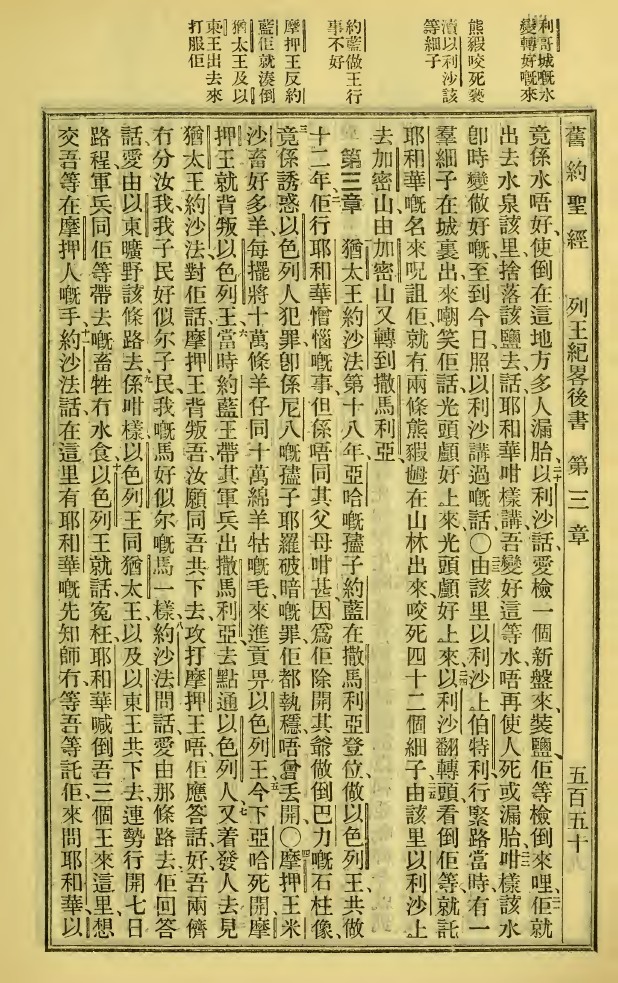 利哥城嘅水
變轉好嘅來
熊貑咬死褻
瀆以利沙該
等細子
約藍做王行
事不好
摩押王反約
藍佢就湊倒
猶太王及以
東王出去來
打服佢
舊約聖經 列王紀畧後書 第三章 五百五十
竟係水唔好、使倒在這地方多人漏胎、二十以利沙話、愛檢一個新盤來裝鹽、佢等檢倒來哩、二一佢就
出去水泉該里、捨落該鹽去、話、耶和華咁樣講、吾變好這等水、唔再使人死或漏胎、二二咁樣該水
卽時變做好嘅、至到今日、照以利沙講過嘅話、〇二三由該里以利沙上伯特利、行緊路當時、有一
羣細子在城裏出來、嘲笑佢話、光頭顱好上來、光頭顱好上來、二四以利沙翻轉頭、看倒佢等、就託
耶和華嘅名來呪詛佢、就有兩條熊貑𡜵在山林出來、咬死四十二個細子、二五由該里以利沙上
去加密山、由加密山又轉到撒馬利亞、
第三章 一猶太王約沙法第十八年、亞哈嘅孻子約藍在撒馬利亞登位、做以色列王、共做
十二年、二佢行耶和華憎惱嘅事、但係唔同其父母咁甚、因爲佢除開其爺做倒巴力嘅石柱像、
三竟係誘惑以色列人犯罪、卽係尼八嘅孻子耶羅破暗嘅罪、佢都執穩、唔曾丟開、〇四摩押王米
沙畜好多羊、每擺將十萬條羊仔、同十萬綿羊牯嘅毛、來進貢畀以色列王、五今下亞哈死開、摩
押王就背叛以色列王、六當時約藍王帶其軍兵出撒馬利亞、去點通以色列人、七又着發人去見
猶太王約沙法、對佢話、摩押王背叛吾、汝願同吾共下去攻打摩押王唔、佢應答話、好、吾兩儕
冇分汝我、我子民好似尔子民、我嘅馬好似尔嘅馬一樣、八約沙法問話、愛由那條路去、佢回答
話、愛由以東曠野該條路去、九係咁樣、以色列王、同猶太王、以及以東王共下去、連勢行開七日
路程、軍兵同佢等帶去嘅畜牲冇水食、十以色列王就話、寃枉、耶和華喊倒吾三個王來這里、想
交吾等在摩押人嘅手、十一約沙法話、在這里有耶和華嘅先知師冇、等吾等託佢來問耶和華、以